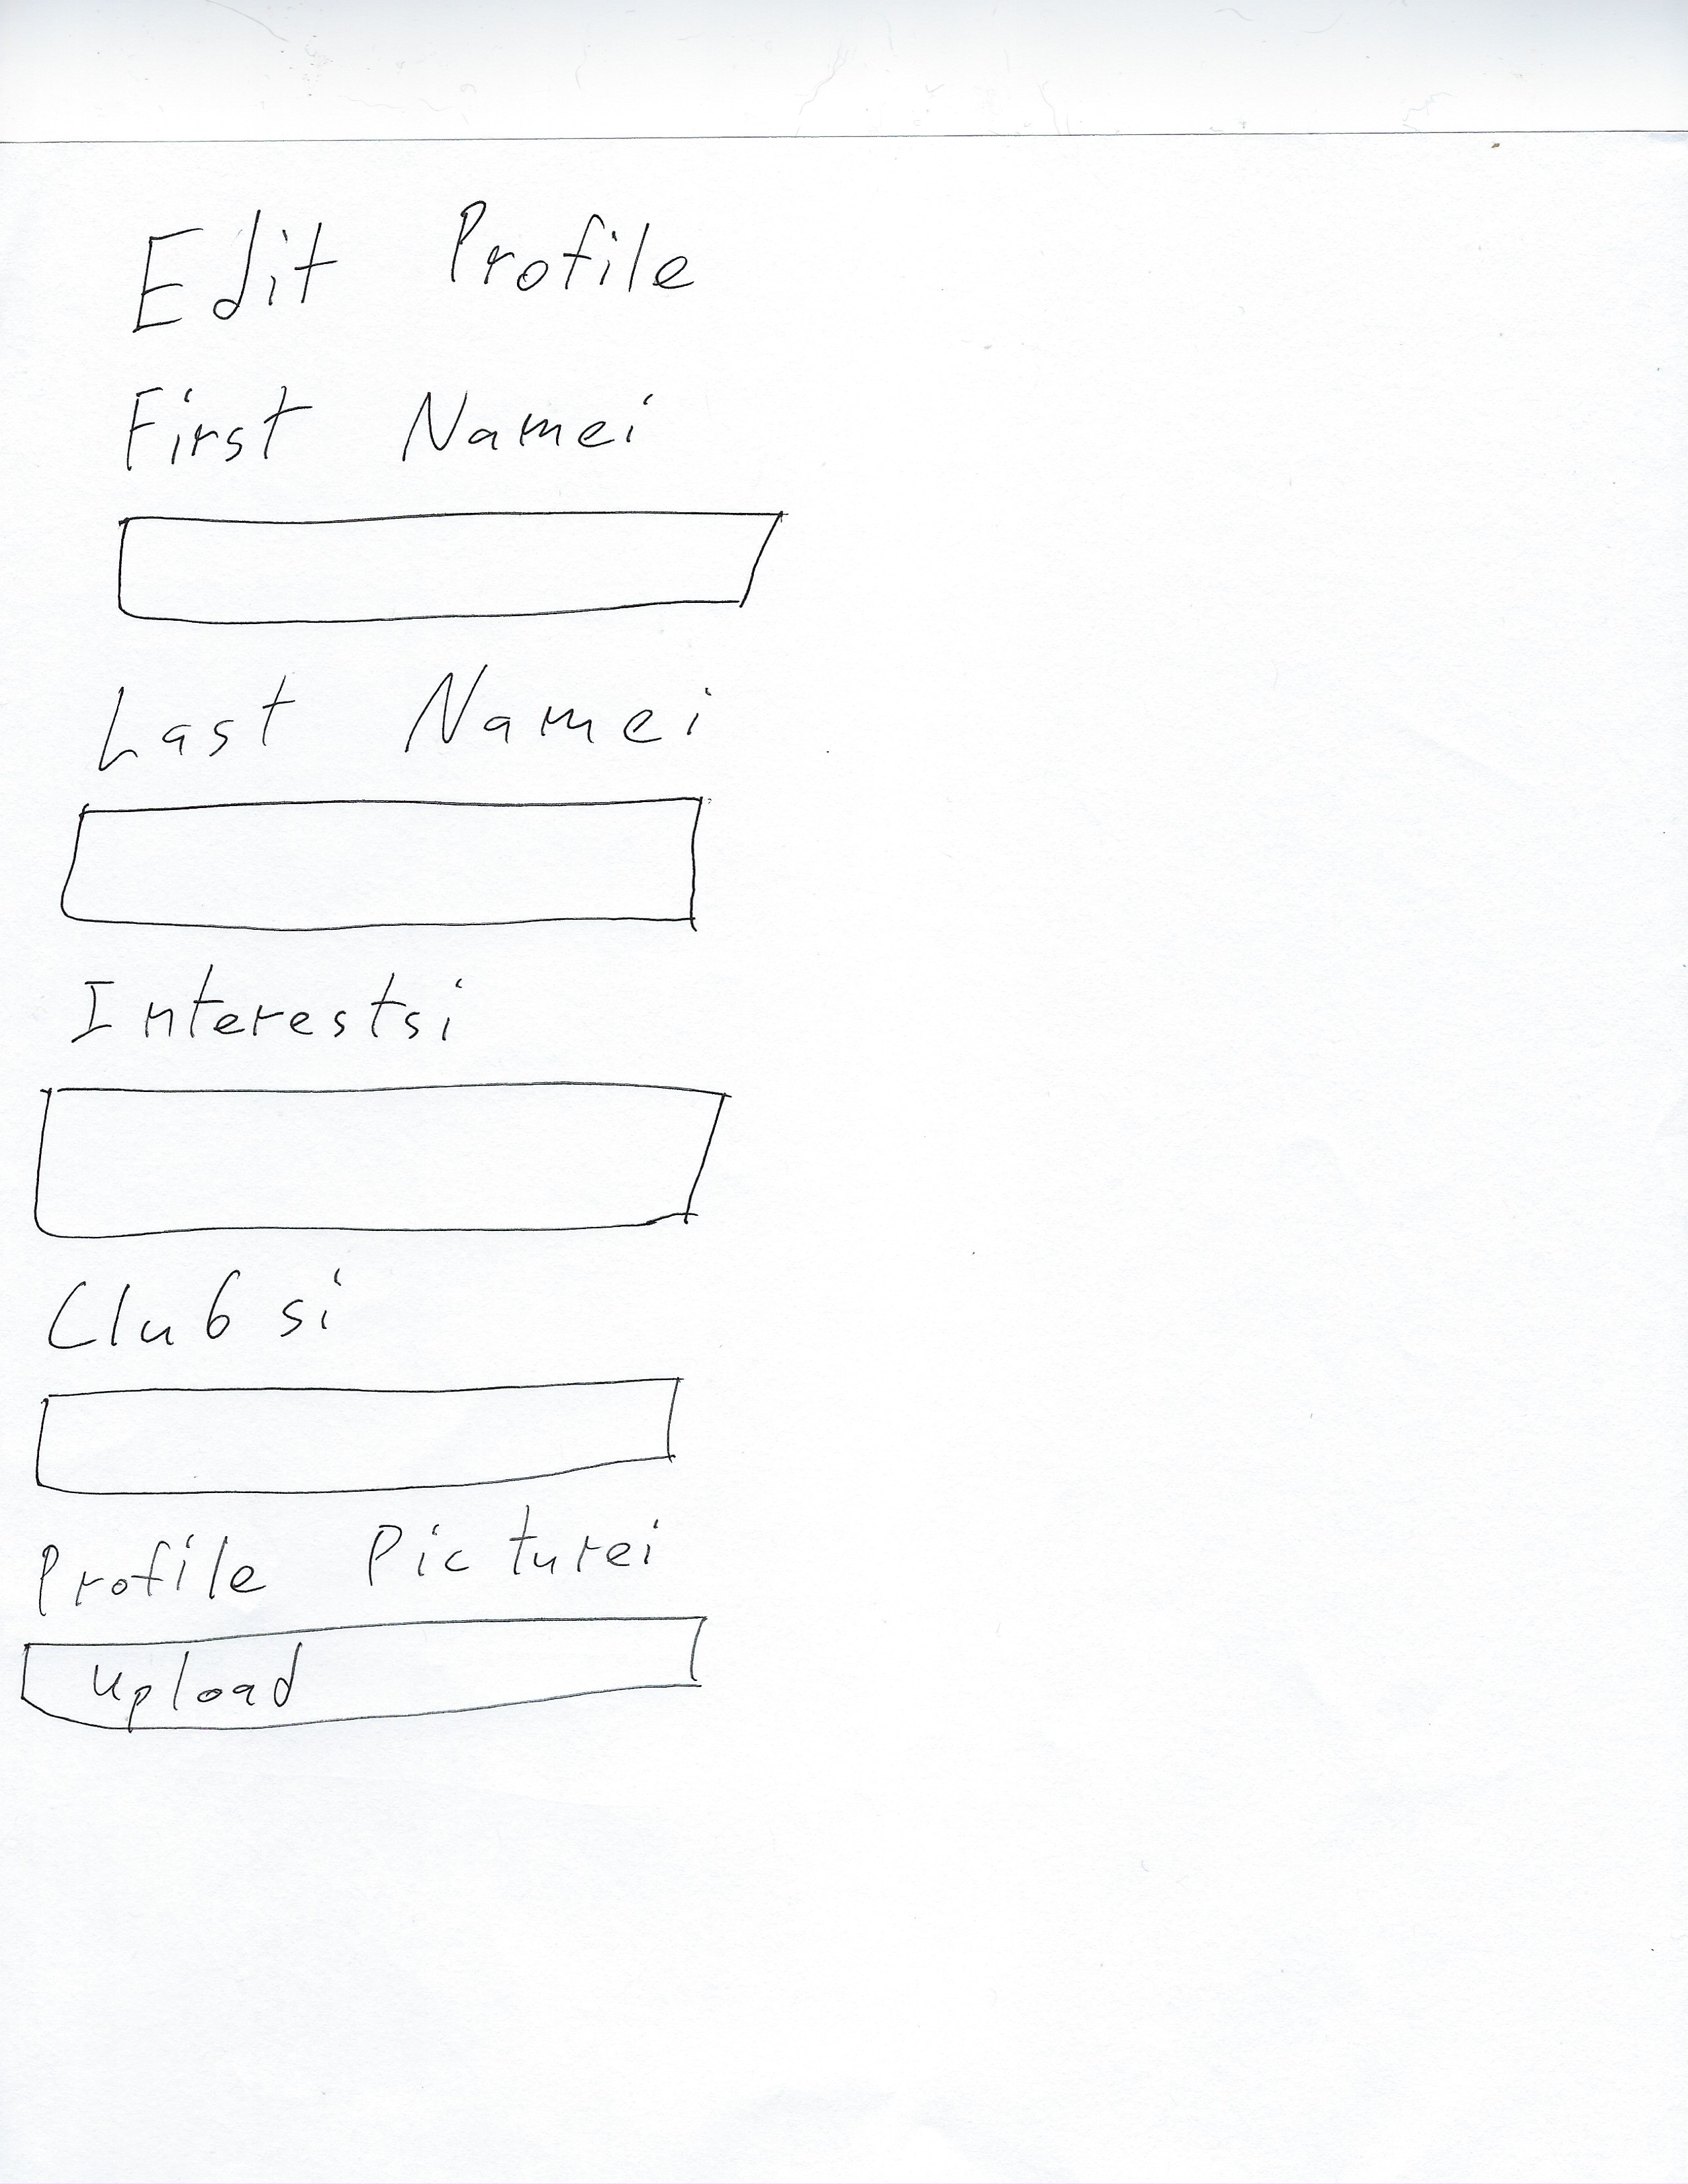 Edit Profile
First Name:
Last Name:
Interests:
Clubs:
Profile Picture:
upload